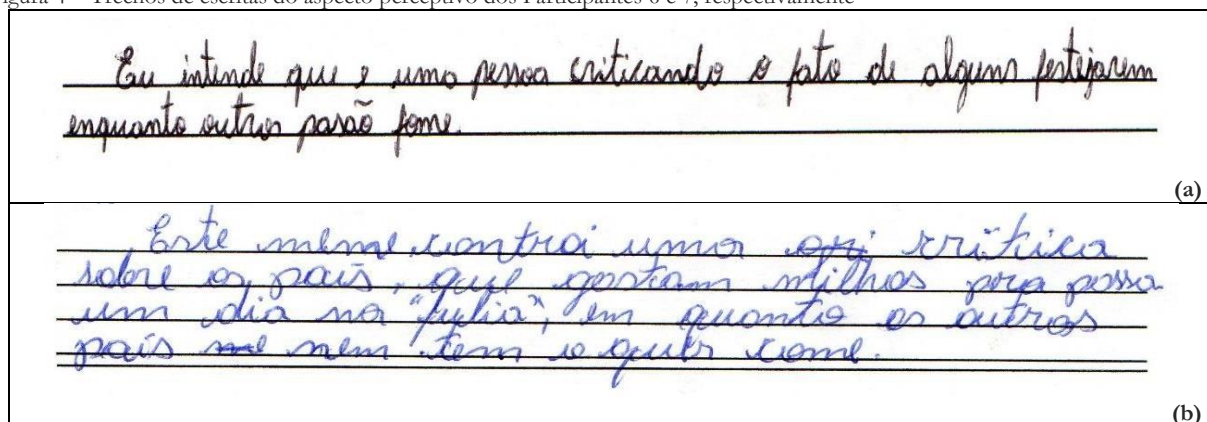 Figura 4 – Trechos de escritas do aspecto perceptivo dos Participantes 6 e 7, respectivamente
Eu intende que e uma pessoa criticando o fato de alguns festijarem
enquanto outros pasão fome.
(a)
Este meme controi uma cri crítica
sobre os país, que gastam milhos pra passa
um dia na "fulia", em quanto os outros
país me nem tem o quer come.
(b)